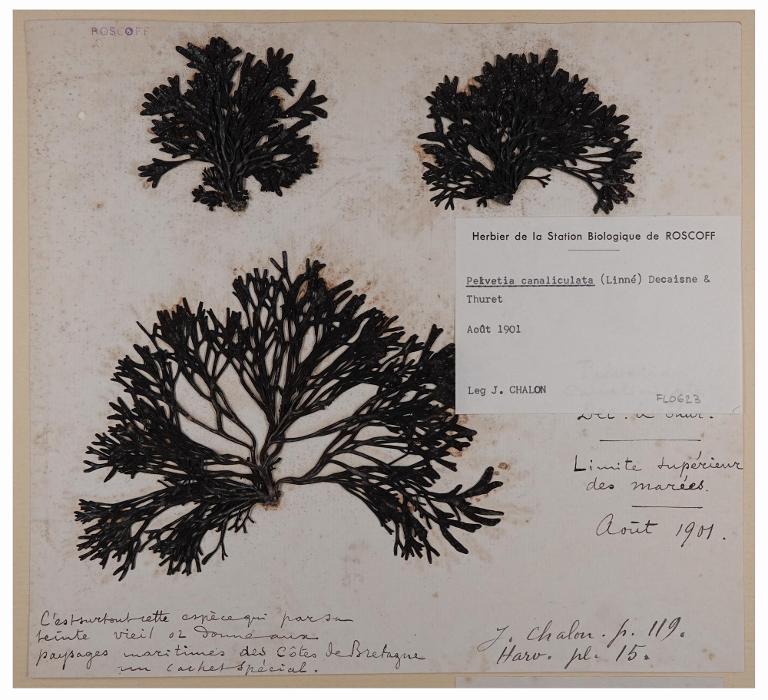 ROSCOFF
Herbier de la Station Biologique de ROSCOFF
Pelvetia canaliculata (Linné) Decaisne &
Thuret
Août 1901
Leg J. CHALON
FL0623
Dec. & Thur.
Limite supérieur
des marées.
Août 1901.
C'est surtout cette espèce qui par sa
teinte vieil or donne aux
paysages maritimes des Côtes de Bretagne
un cachet spécial.
J. Chalon. p. 119.
Harv. pl. 15.